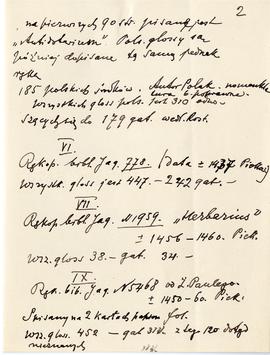 2
na pierwszych 90 str. pisany jest
„Antidotarium". Pols. glossy są
później dopisane tą samą jednak
ręką
185 polskich środków. Autor Polak.
Wszystkich gloss pols. jest 310
179 gat.
VI
Rękop. bibl. Jag. 778. (data ± 1437 Piekos.)
Wszystk. gloss jest 447. – 242 gat. –
VII
Rękop. bibl. Jag. N 1959. „Herbarius"
± 1456 – 1460. Piek.
Wsz. gloss 38. – gat. 34. –
IX
Ręk. bib. Jag. N 5468 od Ż. Paulego.
± 1450-60. Piek.
Spisany na 2 kartach fol.
Wsz. gloss 452 – gat 318. z tego 120 dotąd
nieznanych